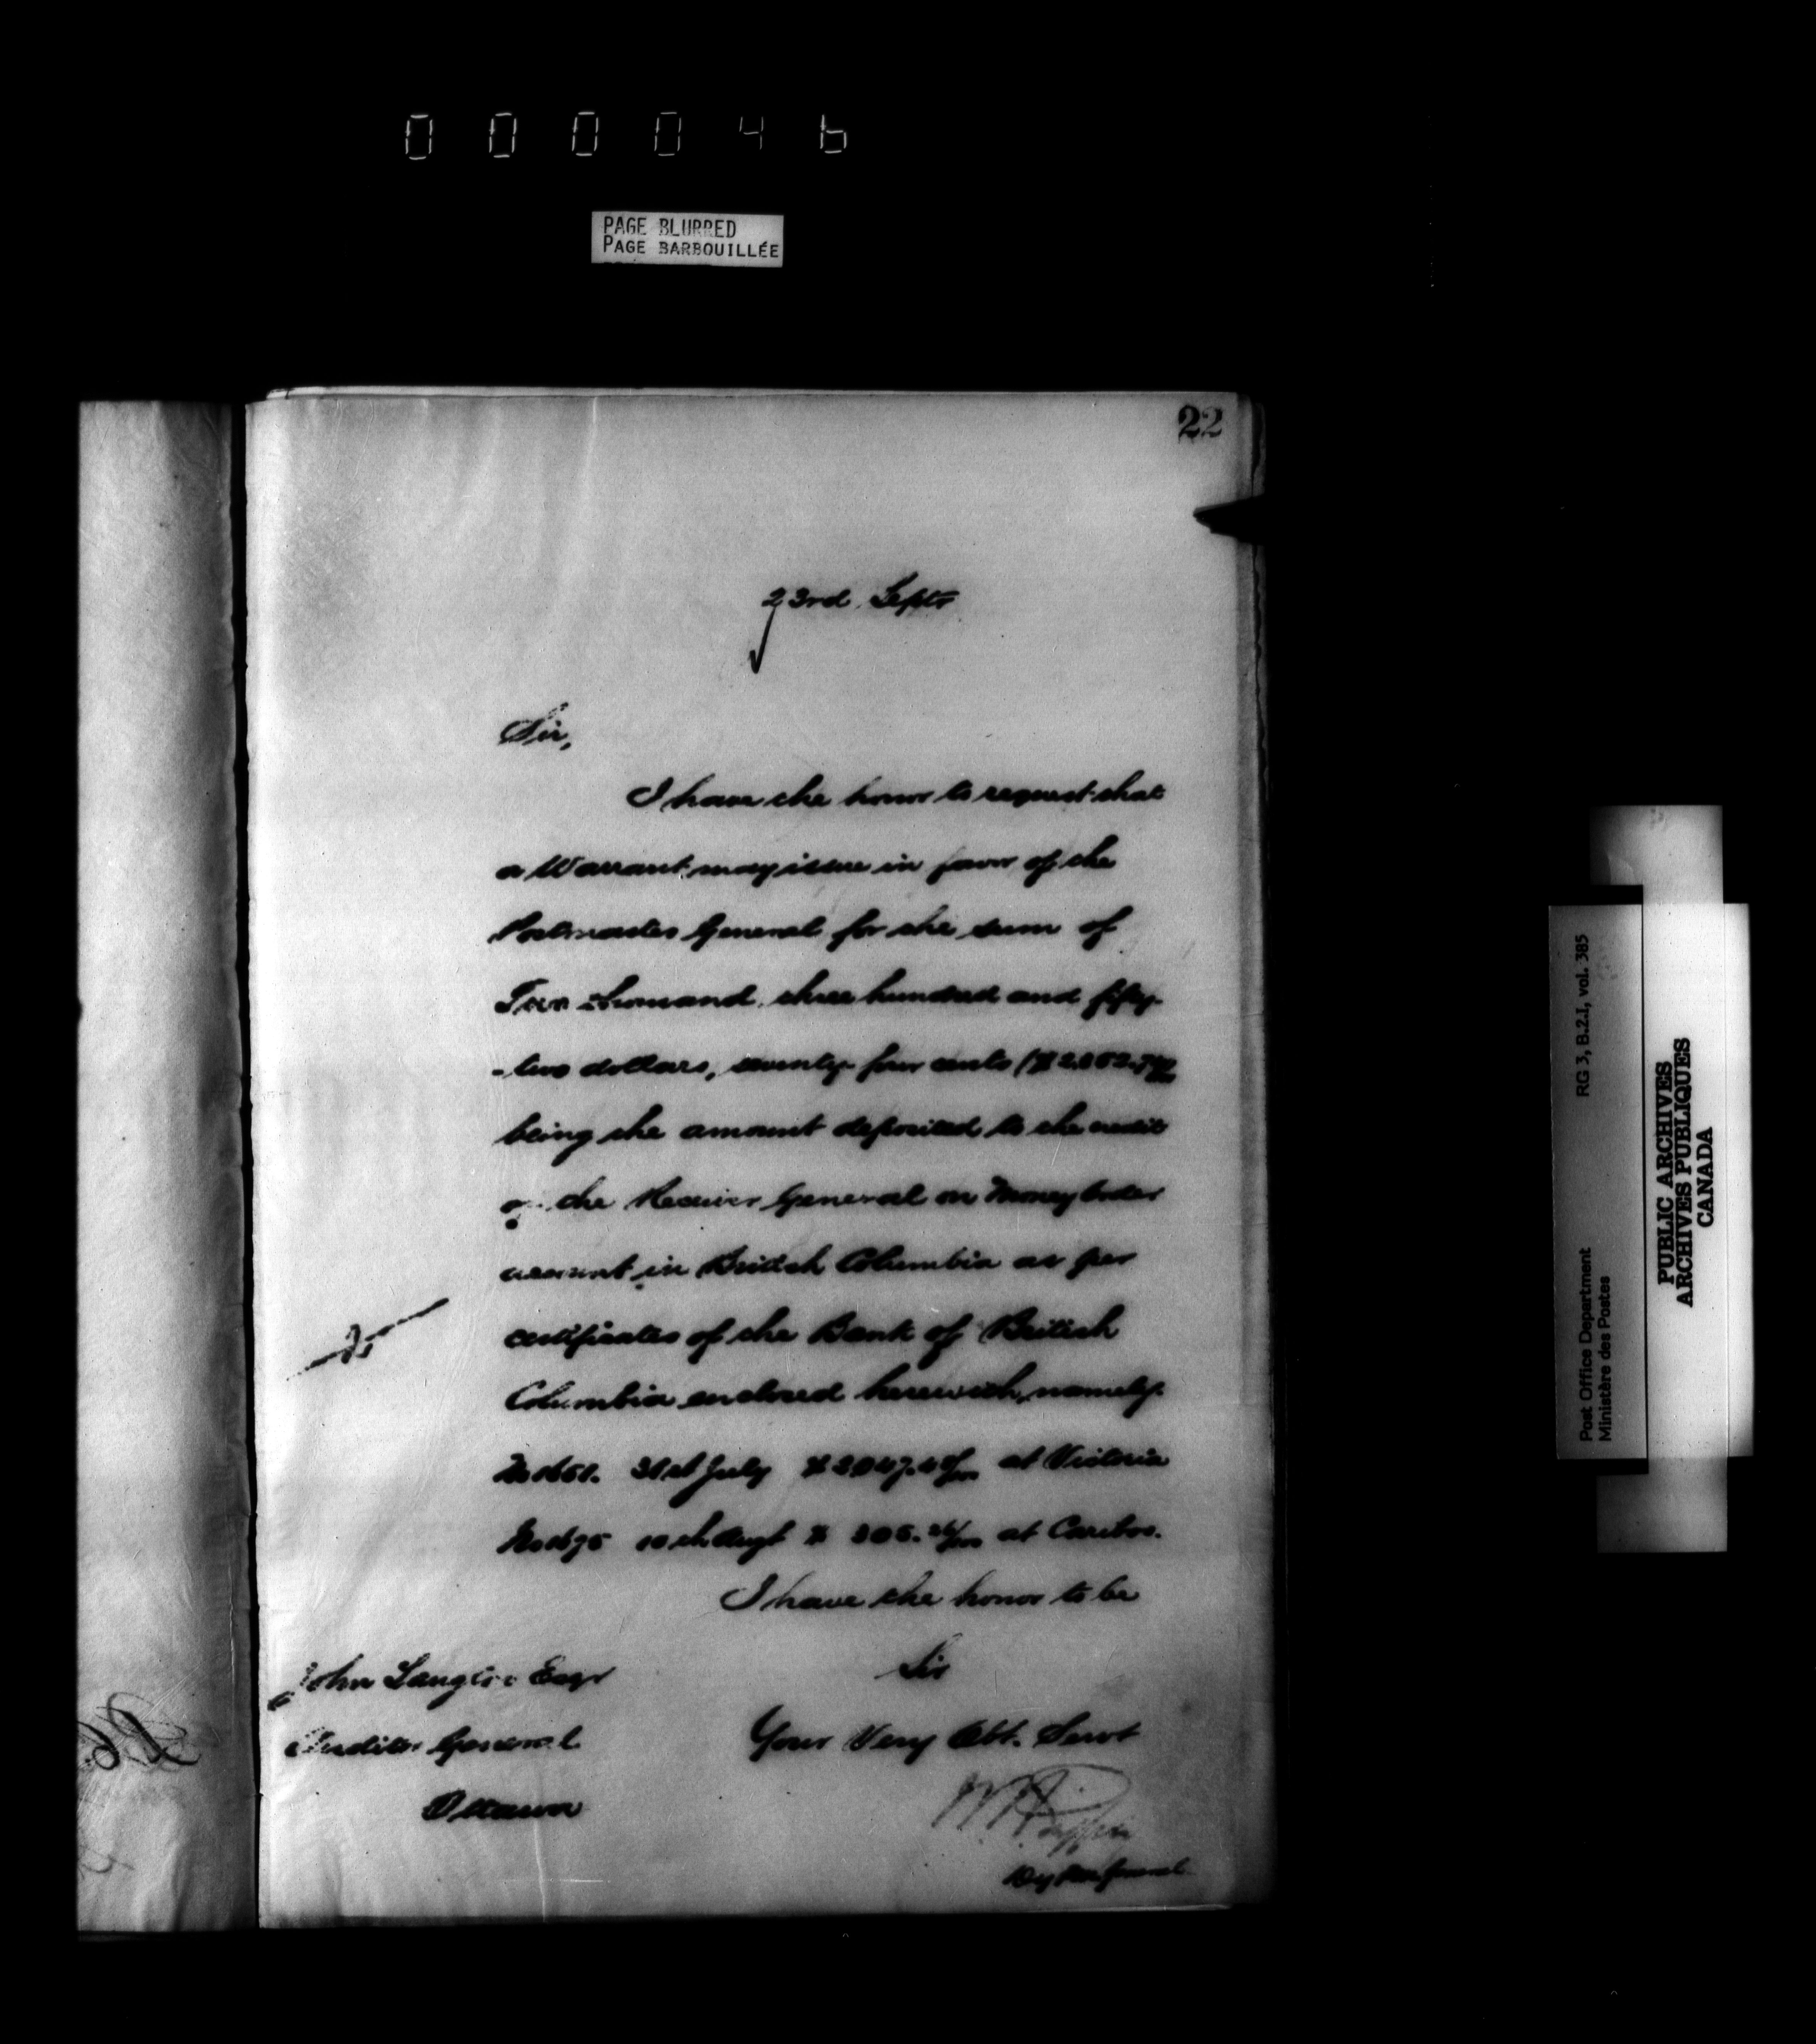 000046
PAGE BLURRED
PAGE BARBOUILLÉE
22
23rd Septr
Sir,
I have the honor to request that
a Warrant may issue in favor of the
Postmaster General for the sum of
Two thousand three hundred and fifty
-two dollars, seventy four cents
being the amount deposited to the credit
of the Receiver General on Money Order
account in British Columbia as per
certificates of the Bank of British
Columbia enclosed herewith, namely
31st July at Victoria
10th Augt $ 305. 26/100 at Cariboo.
I have the honor to be
Sir
Your Very Obt. Servt
John Langton Esqr
Auditor General
Ottawa
RG 3, B.2.I, vol. 385
Post Office Department
Ministère des Postes
PUBLIC ARCHIVES
ARCHIVES PUBLIQUES
CANADA